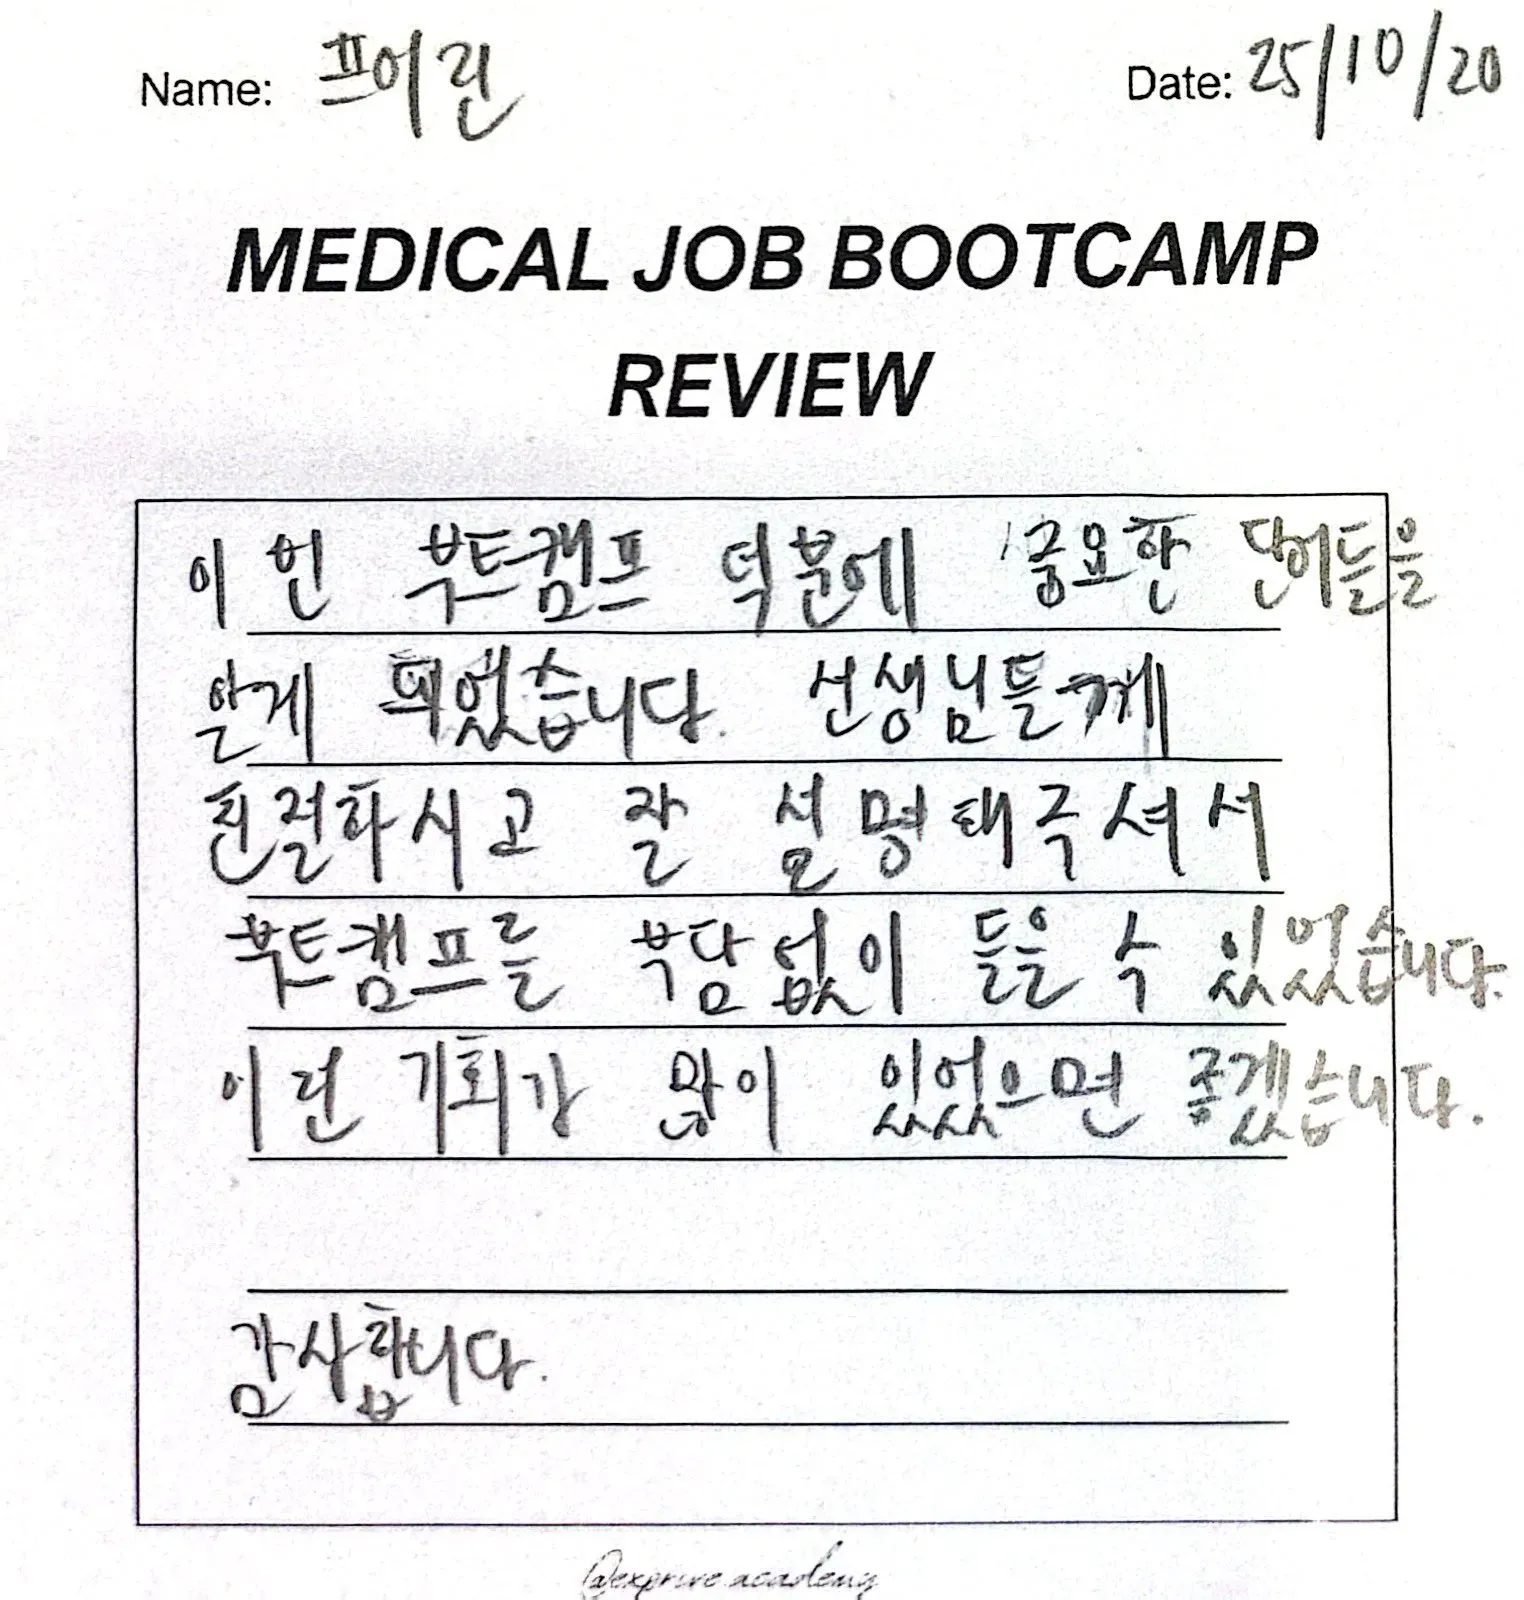 Name: 프어린
Date: 25/10/20
MEDICAL JOB BOOTCAMP
REVIEW
이 번 부트캠프 덕분에 중요한 단어들을
알게 되었습니다. 선생님들께
친절하시고 잘 설명해주셔서
부트캠프를 부담 없이 들을 수 있었습니다.
이런 기회가 많이 있었으면 좋겠습니다.
감사합니다.
academy